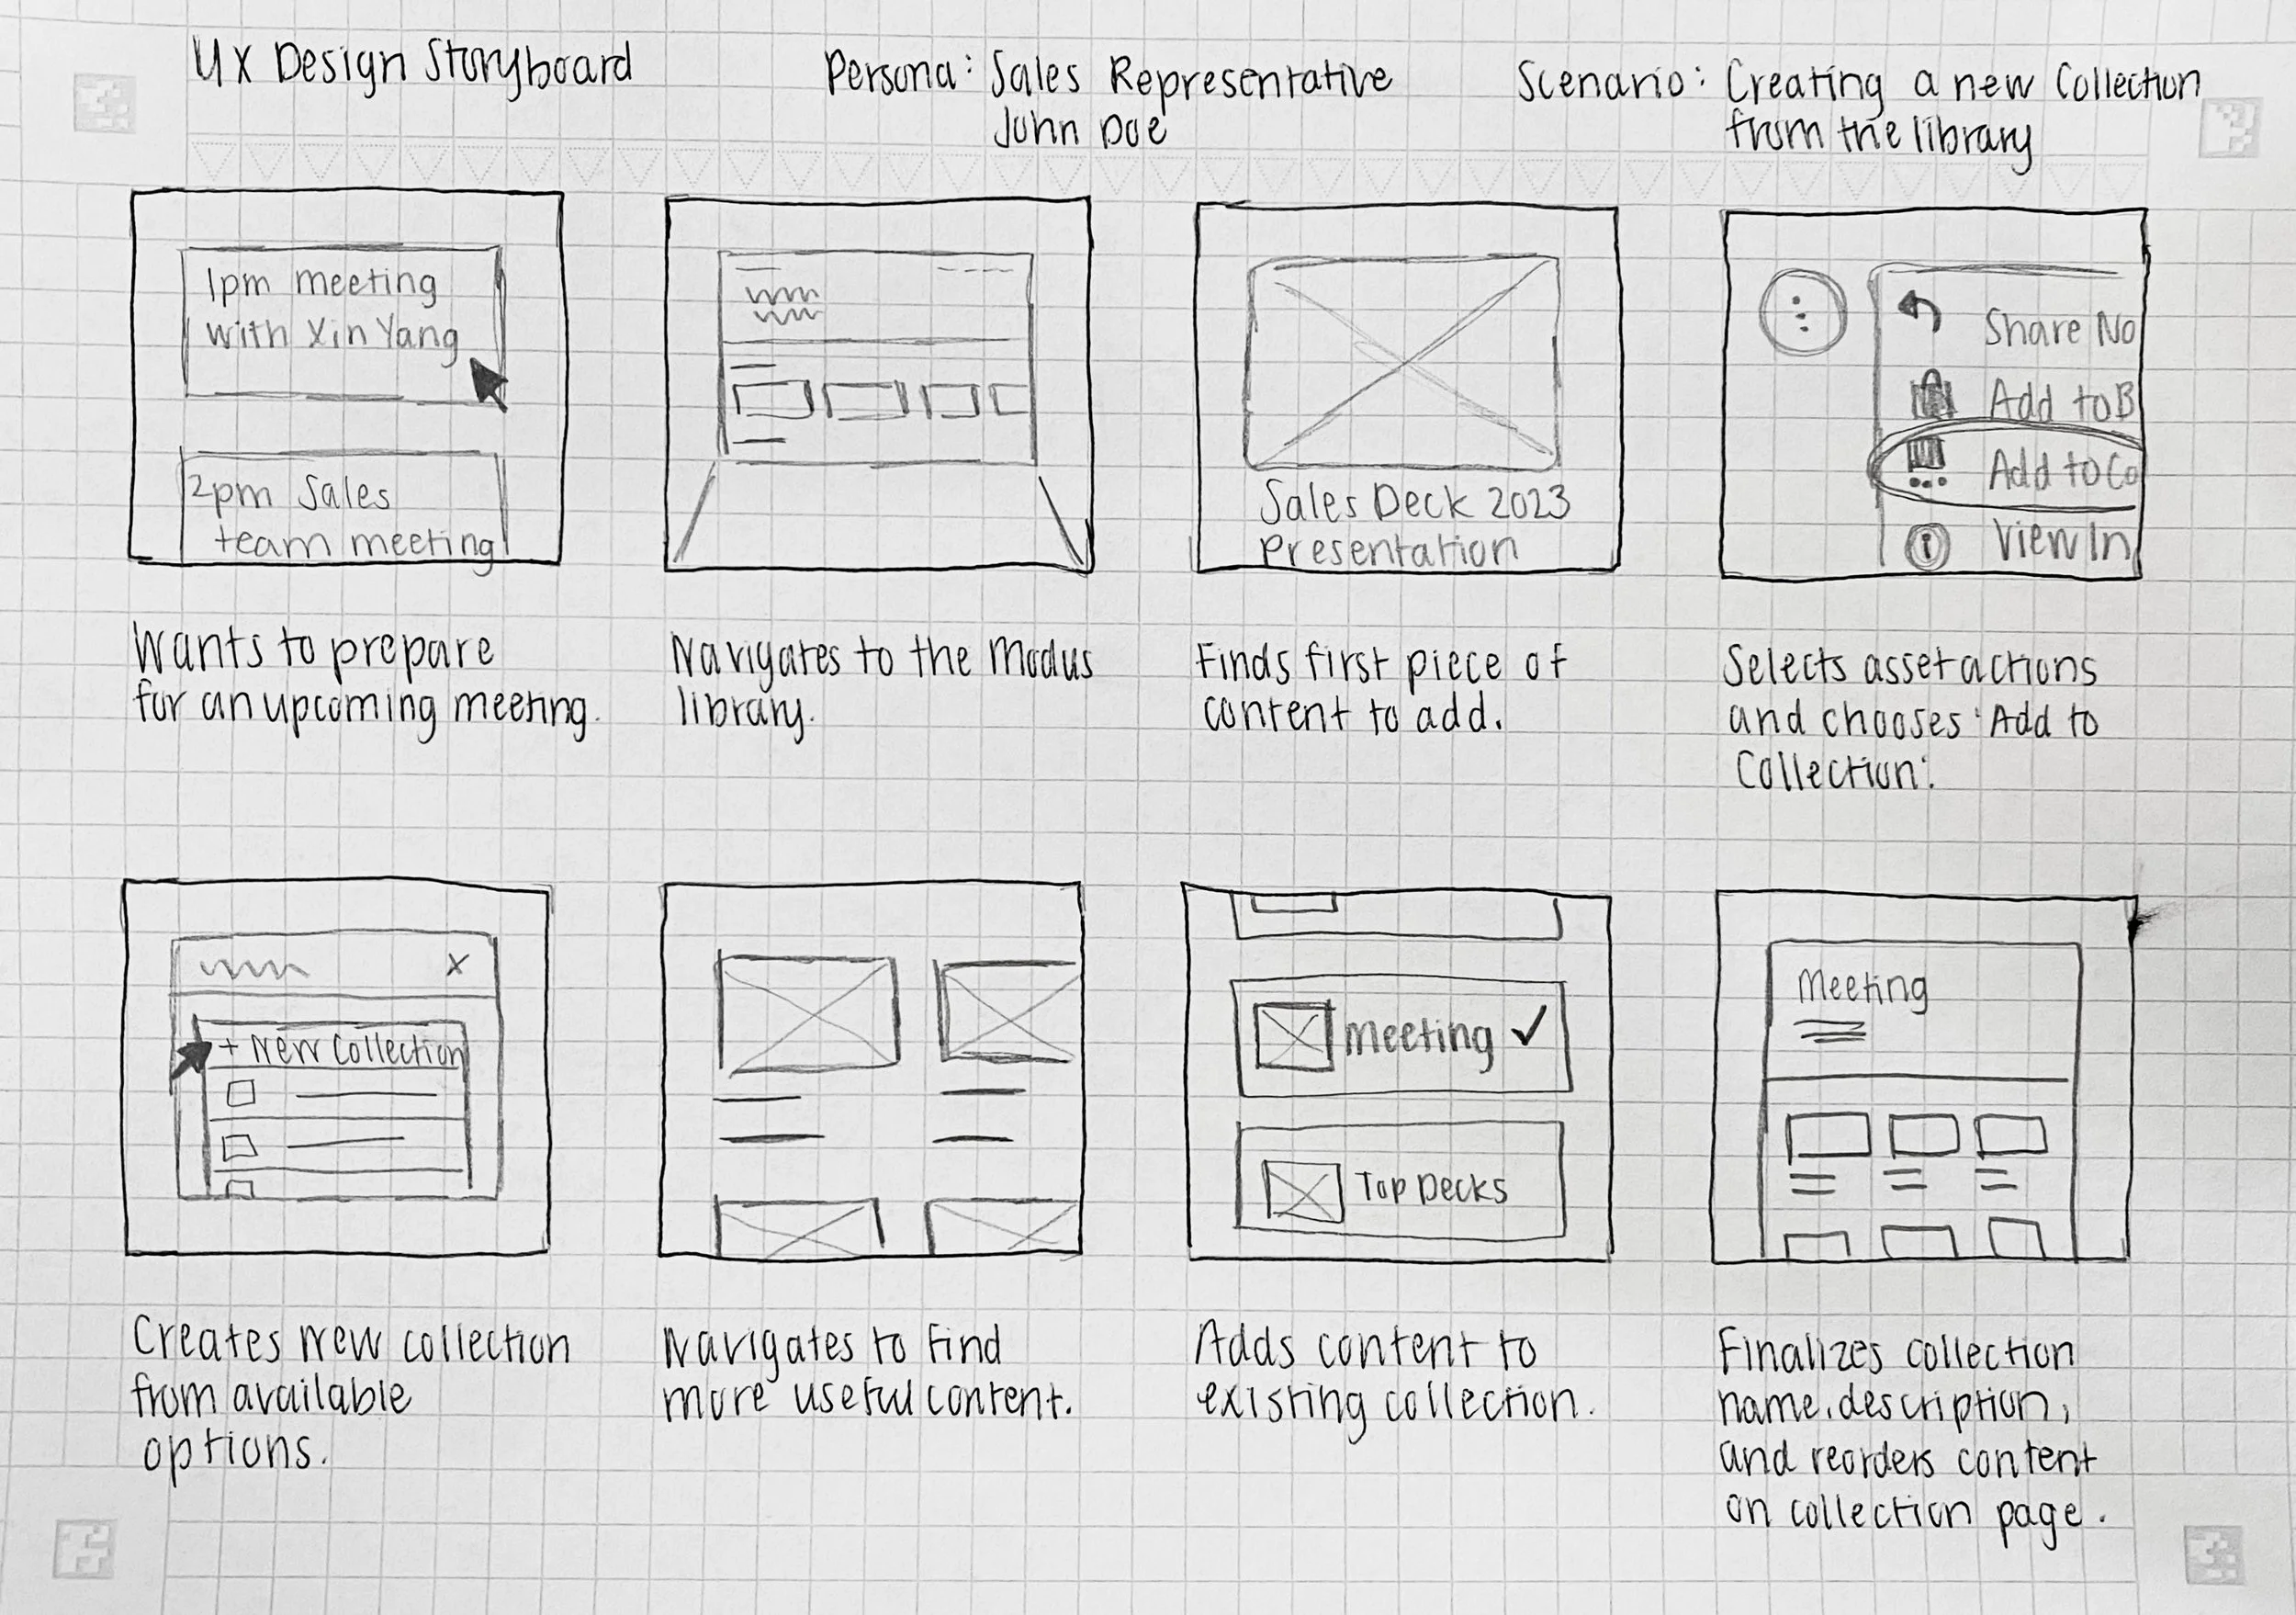 UX Design Storyboard
Persona: Sales Representative
John Doe
Scenario: Creating a new Collection
from the library
1pm meeting
with Xin Yang
2pm Sales
team meeting
Wants to prepare
for an upcoming meeting.
Navigates to the Modus
library.
Sales Deck 2023
Presentation
Finds first piece of
content to add.
Share No
Add to B
Add to Co
View In
Selects asset actions
and chooses 'Add to
Collection'.
X
+ New Collection
Creates new collection
from available
options.
Navigates to find
more useful content.
Meeting ✓
Top Decks
Adds content to
existing collection.
Meeting
Finalizes collection
name, description,
and reorders content
on collection page.